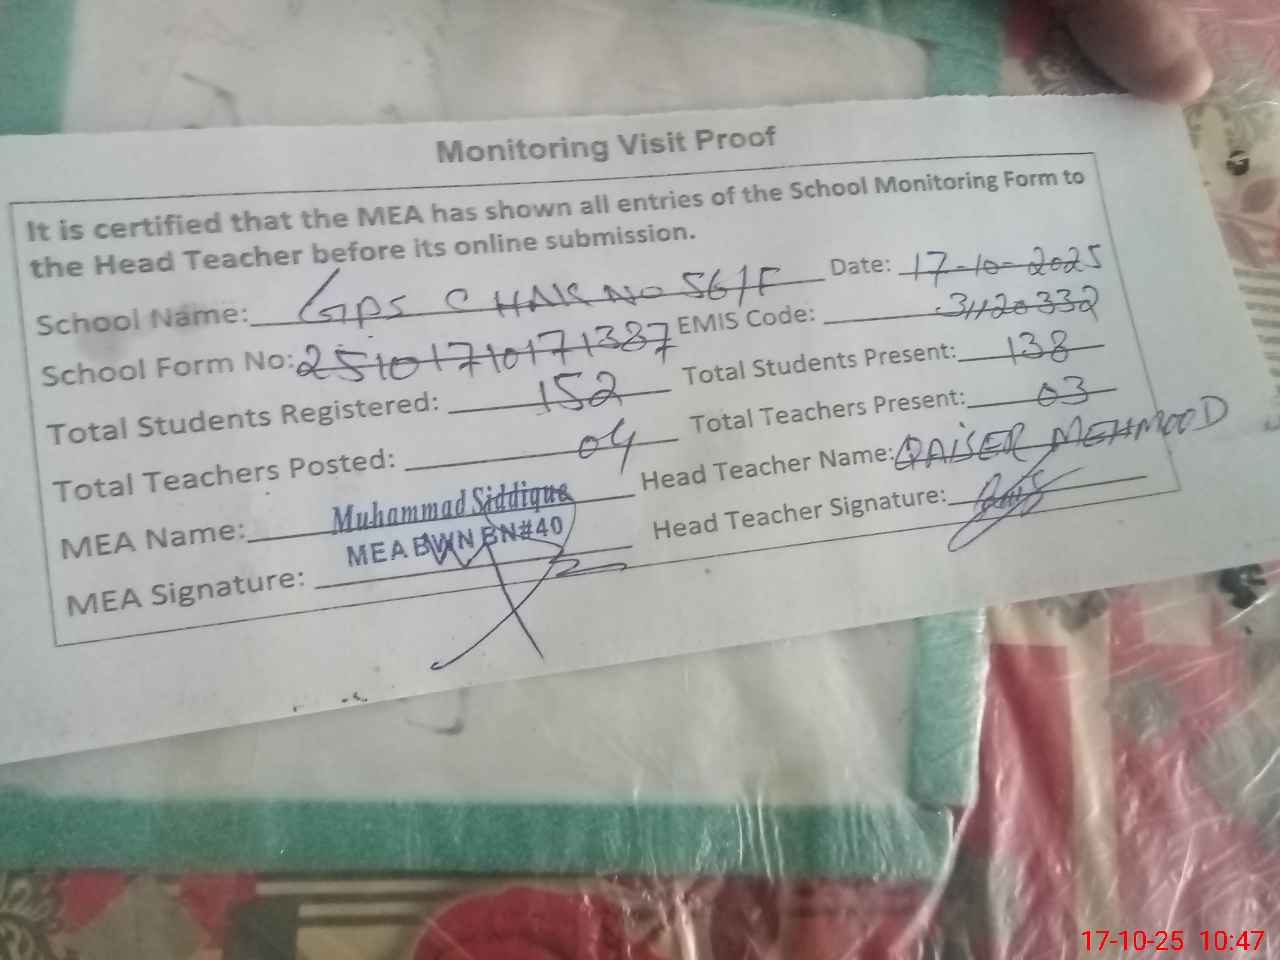 Monitoring Visit Proof
It is certified that the MEA has shown all entries of the School Monitoring Form to
the Head Teacher before its online submission.
School Name: GPS CHAK NO 56/F Date: 17-10-2025
School Form No: 2510171017 1387 EMIS Code: 31120332
Total Students Registered: 152 Total Students Present: 138
Total Teachers Posted: 04 Total Teachers Present: 03
MEA Name: Muhammad Siddique Head Teacher Name: QAISER MEHMOOD
MEA BWN BN#40
MEA Signature: Head Teacher Signature:
17-10-25 10:47